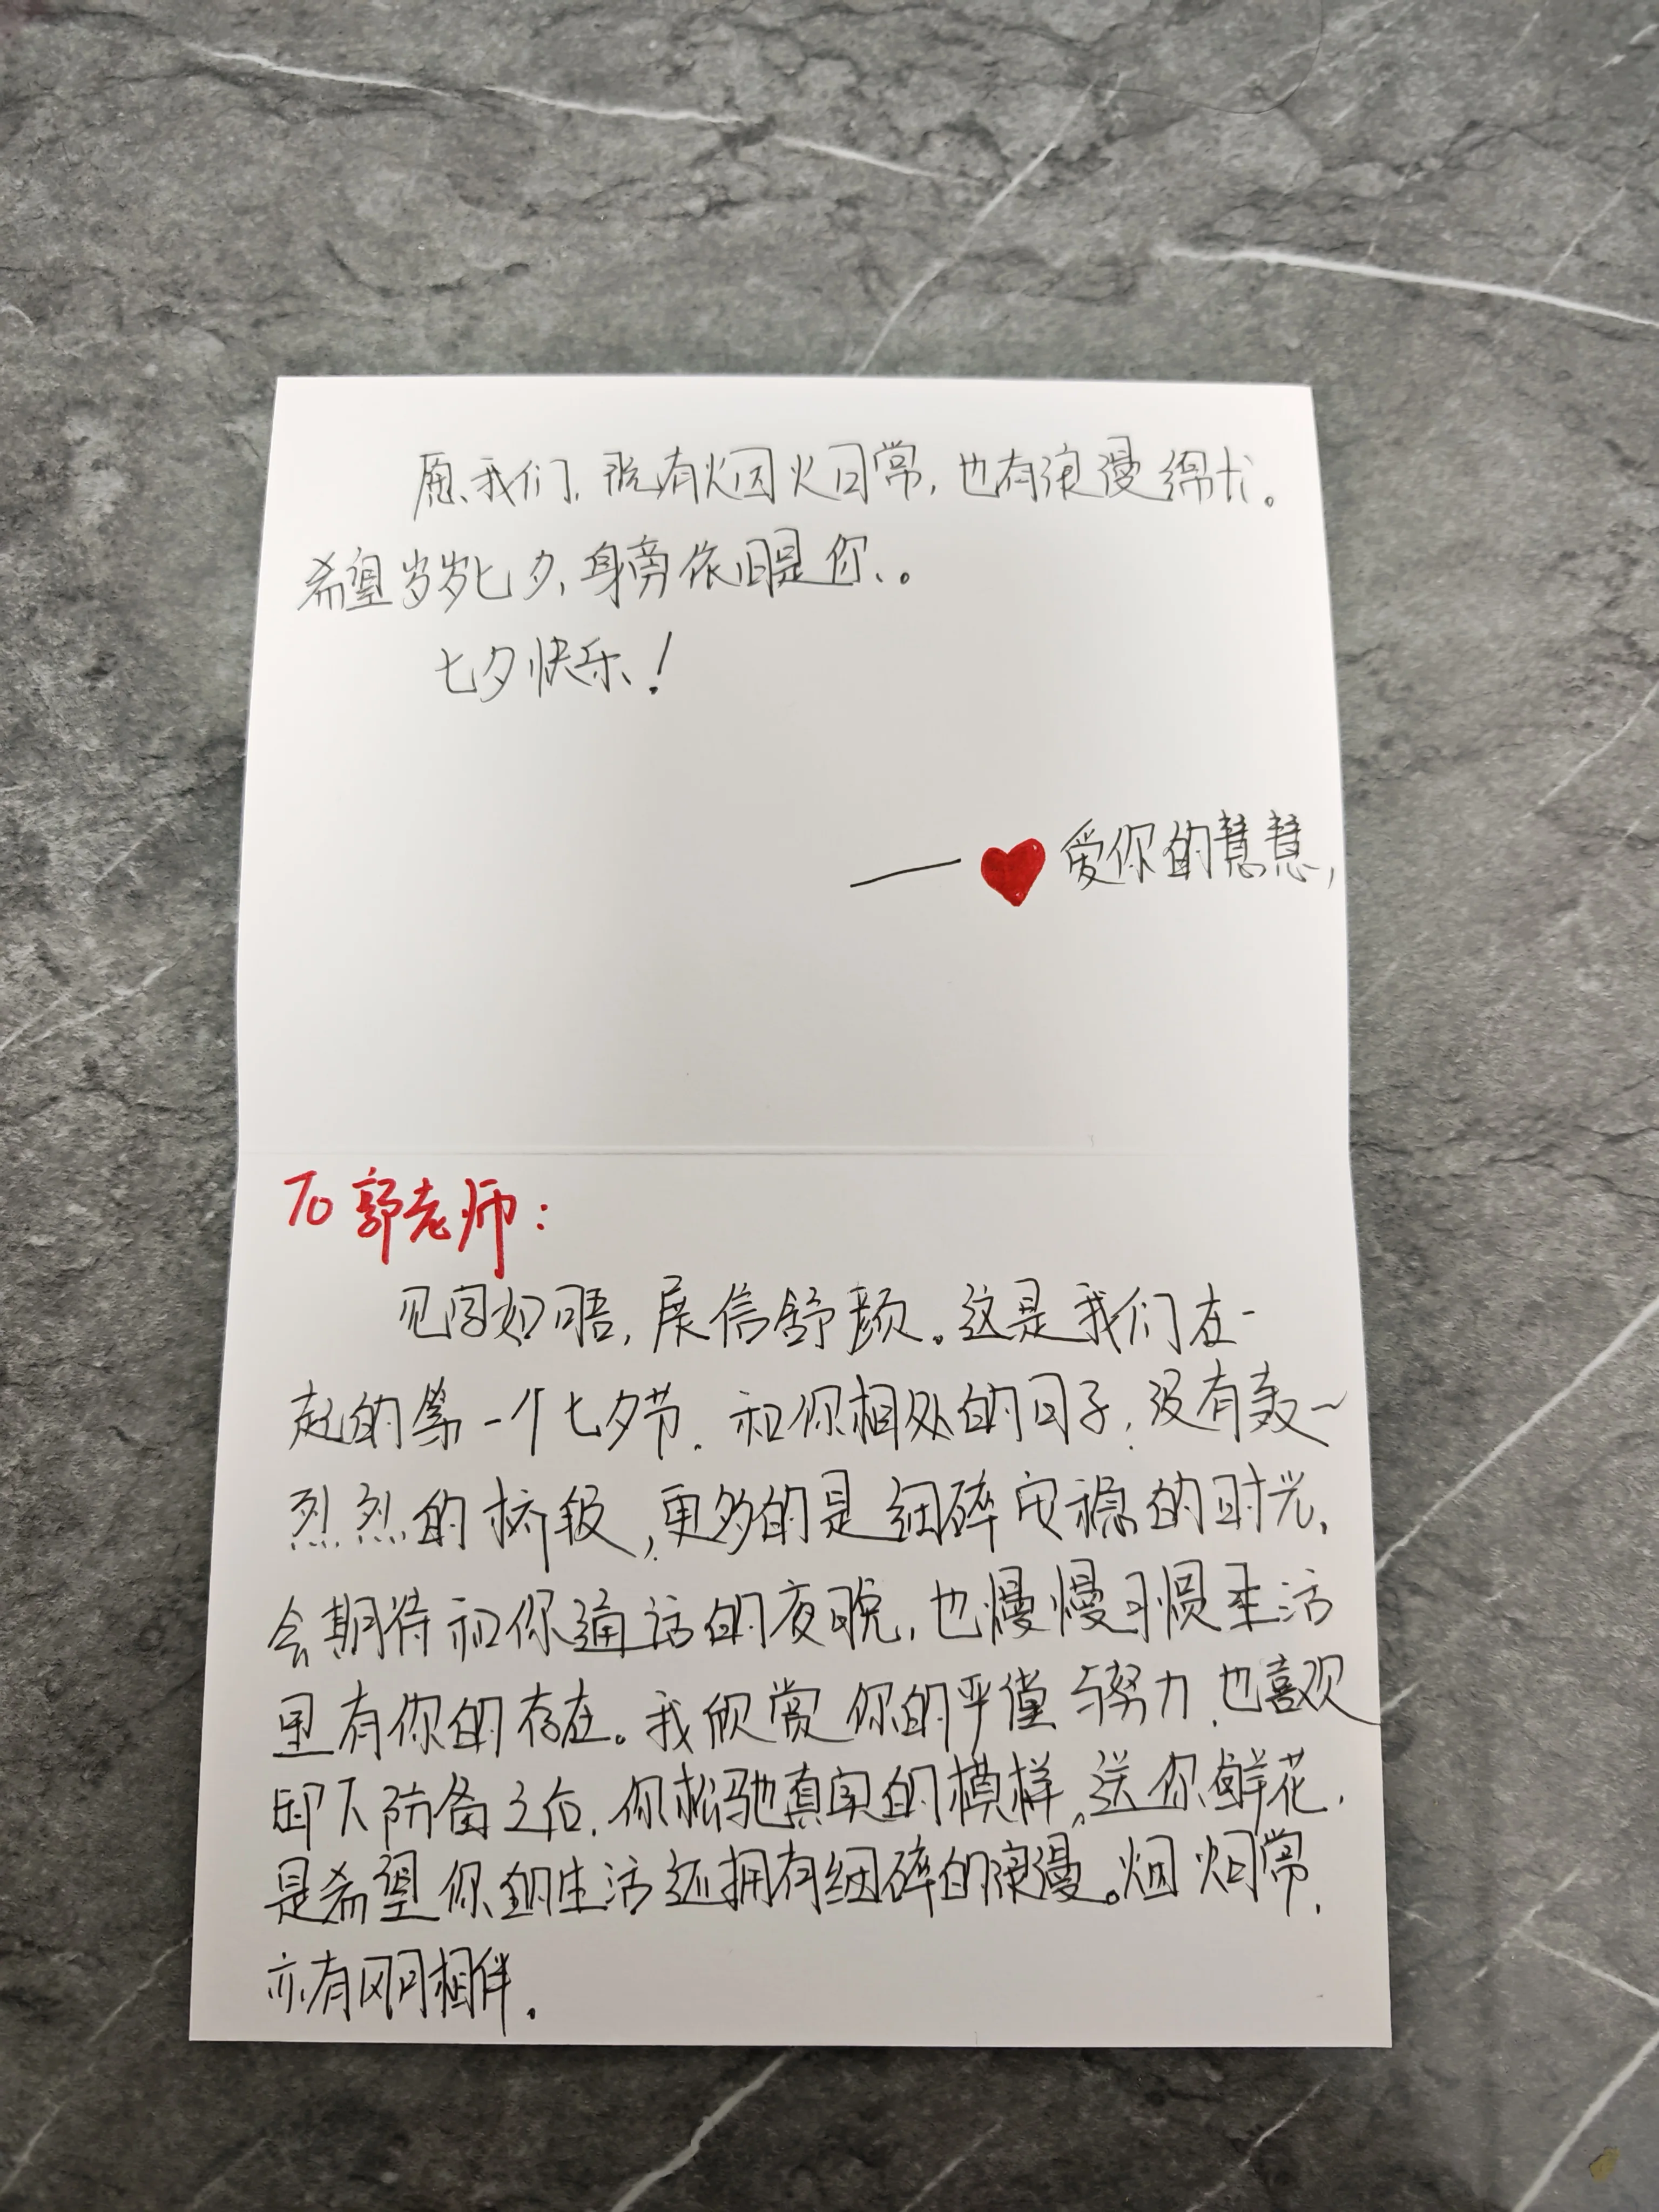 愿我们,既有烟火日常,也有浪漫绵长。
希望岁岁七夕,身旁依旧是你。
七夕快乐!
——爱你的慧慧,
To 郭老师:
见字如晤,展信舒颜。这是我们在一
起的第一个七夕节。和你相处的日子,没有轰~
烈烈的桥段,更多的是细碎安稳的时光,
会期待和你通话的夜晚,也慢慢习惯生活
里有你的存在。我欣赏你的严谨与努力,也喜欢
卸下防备之后,你松弛真实的模样。送你鲜花,
是希望你的生活还拥有细碎的浪漫。烟火日常,
亦有风月相伴。